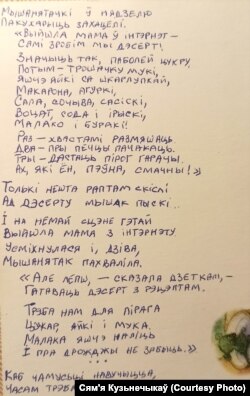 Мышанятачкі ў нядзелю
Пакухарыць захацелі.
«Выйшла мама ў інтэрнэт –
Самі зробім мы дэсерт!
Значыць так, паболей цукру,
Потым – трошачку мукі,
Яшчэ яйкі са шкарлупкай,
Макарона, агуркі,
Сала, сочыва, сасіскі,
Воцат, сода і ірыскі,
Малако і буракі!
Раз – хвастамі размяшаць
Два – пры печцы пачакаць.
Тры – дастаць пірог гарачы.
Ах, які ён, пэўна, смачны!»
Толькі нешта раптам скіслі
Ад дэсерту мышак пыскі..
І на немай сцэне гэтай
Выйшла мама з інтэрнэту
Усміхнулася і, дзіва,
Мышанятак пахваліла.
«Але лепш, – сказала дзеткам, –
Гатаваць дэсерт з рэцэптам.
Трэба нам для пірага
Цукар, яйкі і мука.
Малака яшчэ наліць
І пра дрожджы не забыць.»
Каб чамусьці навучыцца,
Часам трэба
Сям'я Кузьнечыкаў (Courtesy Photo)